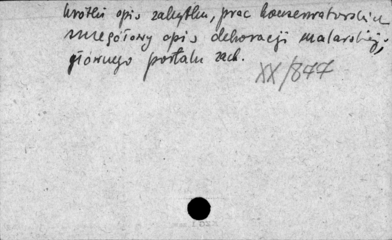 krótki opis zabytku, prac konserwatorskich
szczegółowy opis dekoracji malarskiej,
głównego portalu zach.
XX/877